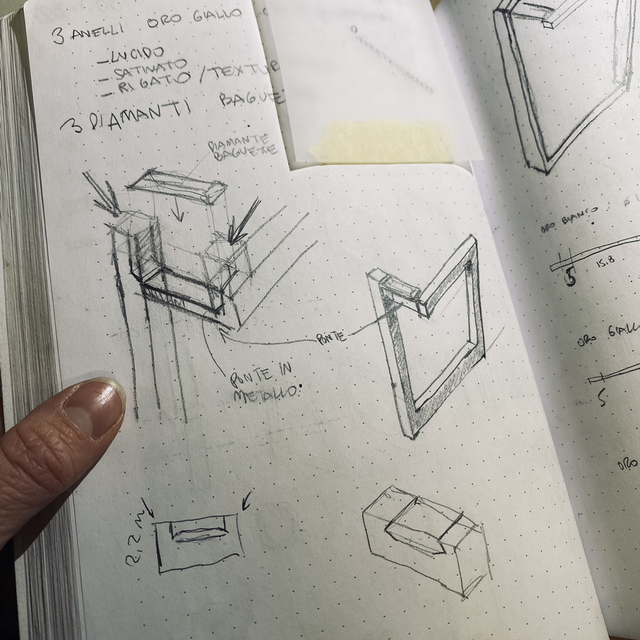 3 ANELLI ORO GIALLO
- LUCIDO
- SATINATO
- RIGATO / TEXTUR
3 DIAMANTI BAGUE
DIAMANTE
BAGUETTE
PONTE
PONTE IN
METALLO.
2,2 m
ORO BIANCO
5 15.8
ORO GIALLO
5
ORO